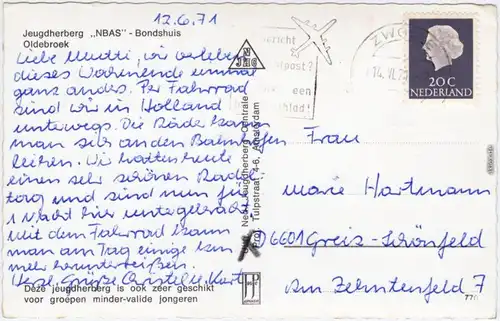 12.6.71
Jeugdherberg „NBAS" - Bondshuis
Oldebroek
Liebe Mutti, wir verleben
dieses Wochenende einmal
ganz anders. Per Fahrrad
sind wir in Holland
unterwegs. Die Räder kann
man sich an den Bahnhöfen
leihen. Wir hatten heute
einen sehr schönen Radel-
tag und sind nun für
1 Nacht hier untergebracht
Mit dem Fahrrad kann
man am Tag einige km
mehr herunterreißen.
Herzl. Grüße Christel u. Kurt
Deze jeugdherberg is ook zeer geschikt
voor groepen minder-valide jongeren
NJHC
Jeugdherberg-Centrale
Tulpstraat 4-6, Amsterdam
een
ZWO
14.VI
20 C
NEDERLAND
Frau
Marie Hartmann
6601 Greiz-Schönfeld
Am Zehntenfeld 7